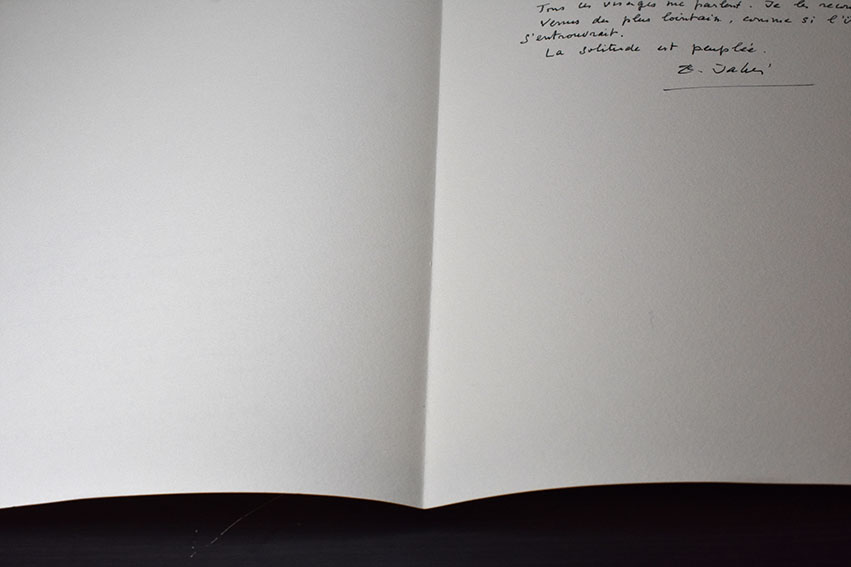 Tous les visages me parlent. Je les recon
venus du plus lointain, comme si l'
s'entrouvrait.
La solitude est peuplée.
E. Jabès